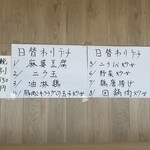 日替わりランチ
1/ 麻婆豆腐
2/ ニラ玉
3/ 油淋鶏
4/ 豚肉とキクラゲの玉子炒め
日替わりランチ
5/ ニラレバ炒め
6/ 野菜炒め
7/ 鶏唐揚げ
8/ 回鍋肉